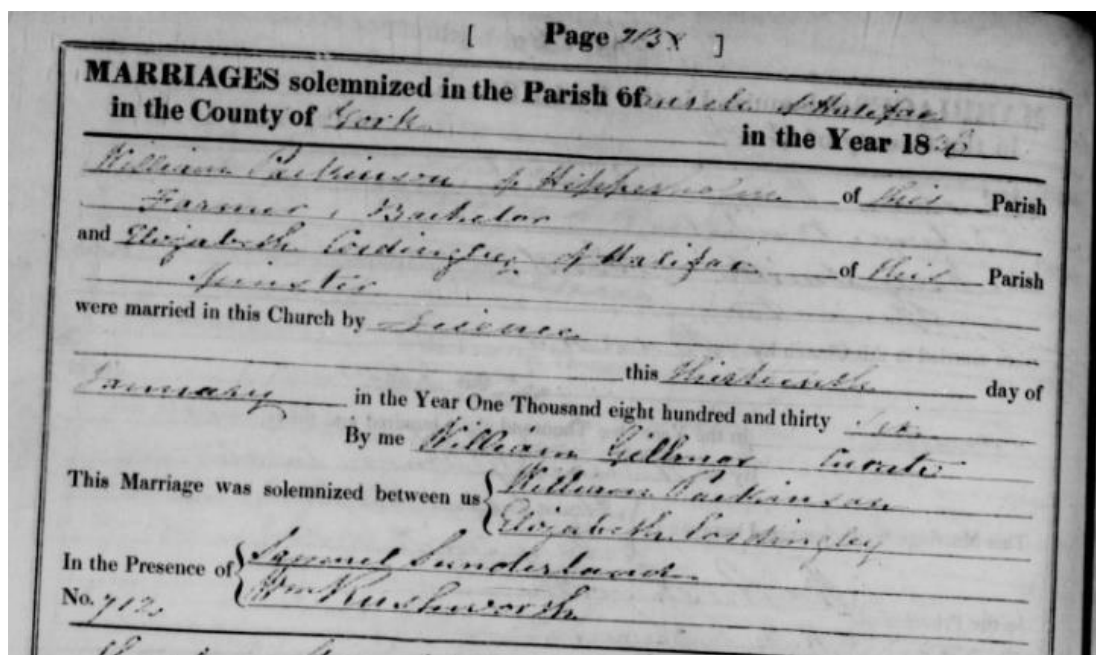 [ Page ]
MARRIAGES solemnized in the Parish of Halifax
in the County of York in the Year 1836
William Parkinson of Hipperholme of this Parish
Farmer, Bachelor
and Elizabeth Cordingley of Halifax of this Parish
Spinster
were married in this Church by Licence
this thirteenth day of
January in the Year One Thousand eight hundred and thirty six
By me William Gillmor Curate
This Marriage was solemnized between us William Parkinson
Elizabeth Cordingley
In the Presence of Samuel Sunderland
Wm Rushworth
No. 712.